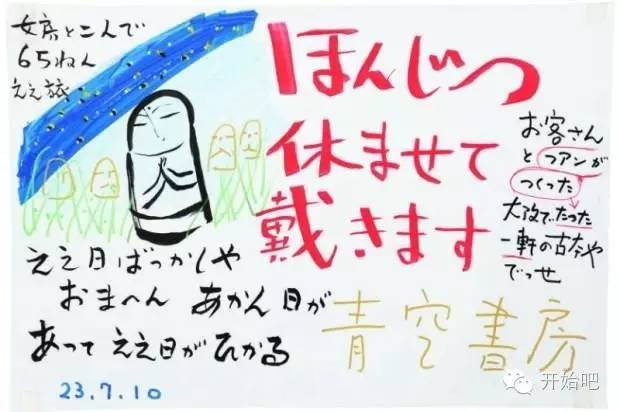 女房と二人で
65ねん
ええ旅
ほんじつ
休ませて
戴きます
お客さん
とファンが
つくった
大阪で、たった
一軒の古本や
でっせ
ええ日ばっかしや
おまへん あかん日が
あって ええ日がひかる
青空書房
23.7.10
开始吧